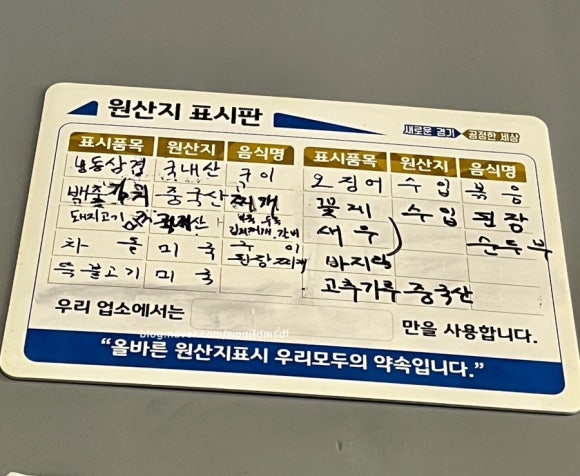 원산지 표시판
새로운 경기 공정한 세상
표시품목 원산지 음식명 표시품목 원산지 음식명
냉동삼겹 국내산 구이
오징어 수입 볶음
배추김치 중국산 찌개
꽃게 수입 된장
돼지고기 김치찌개, 갈비
새우 순두부
차돌 미국 구이
된장찌개
바지락
뚝불고기 미국
고추가루 중국산
우리 업소에서는 만을 사용합니다.
blog.naver.com/
“올바른 원산지표시 우리모두의 약속입니다.”